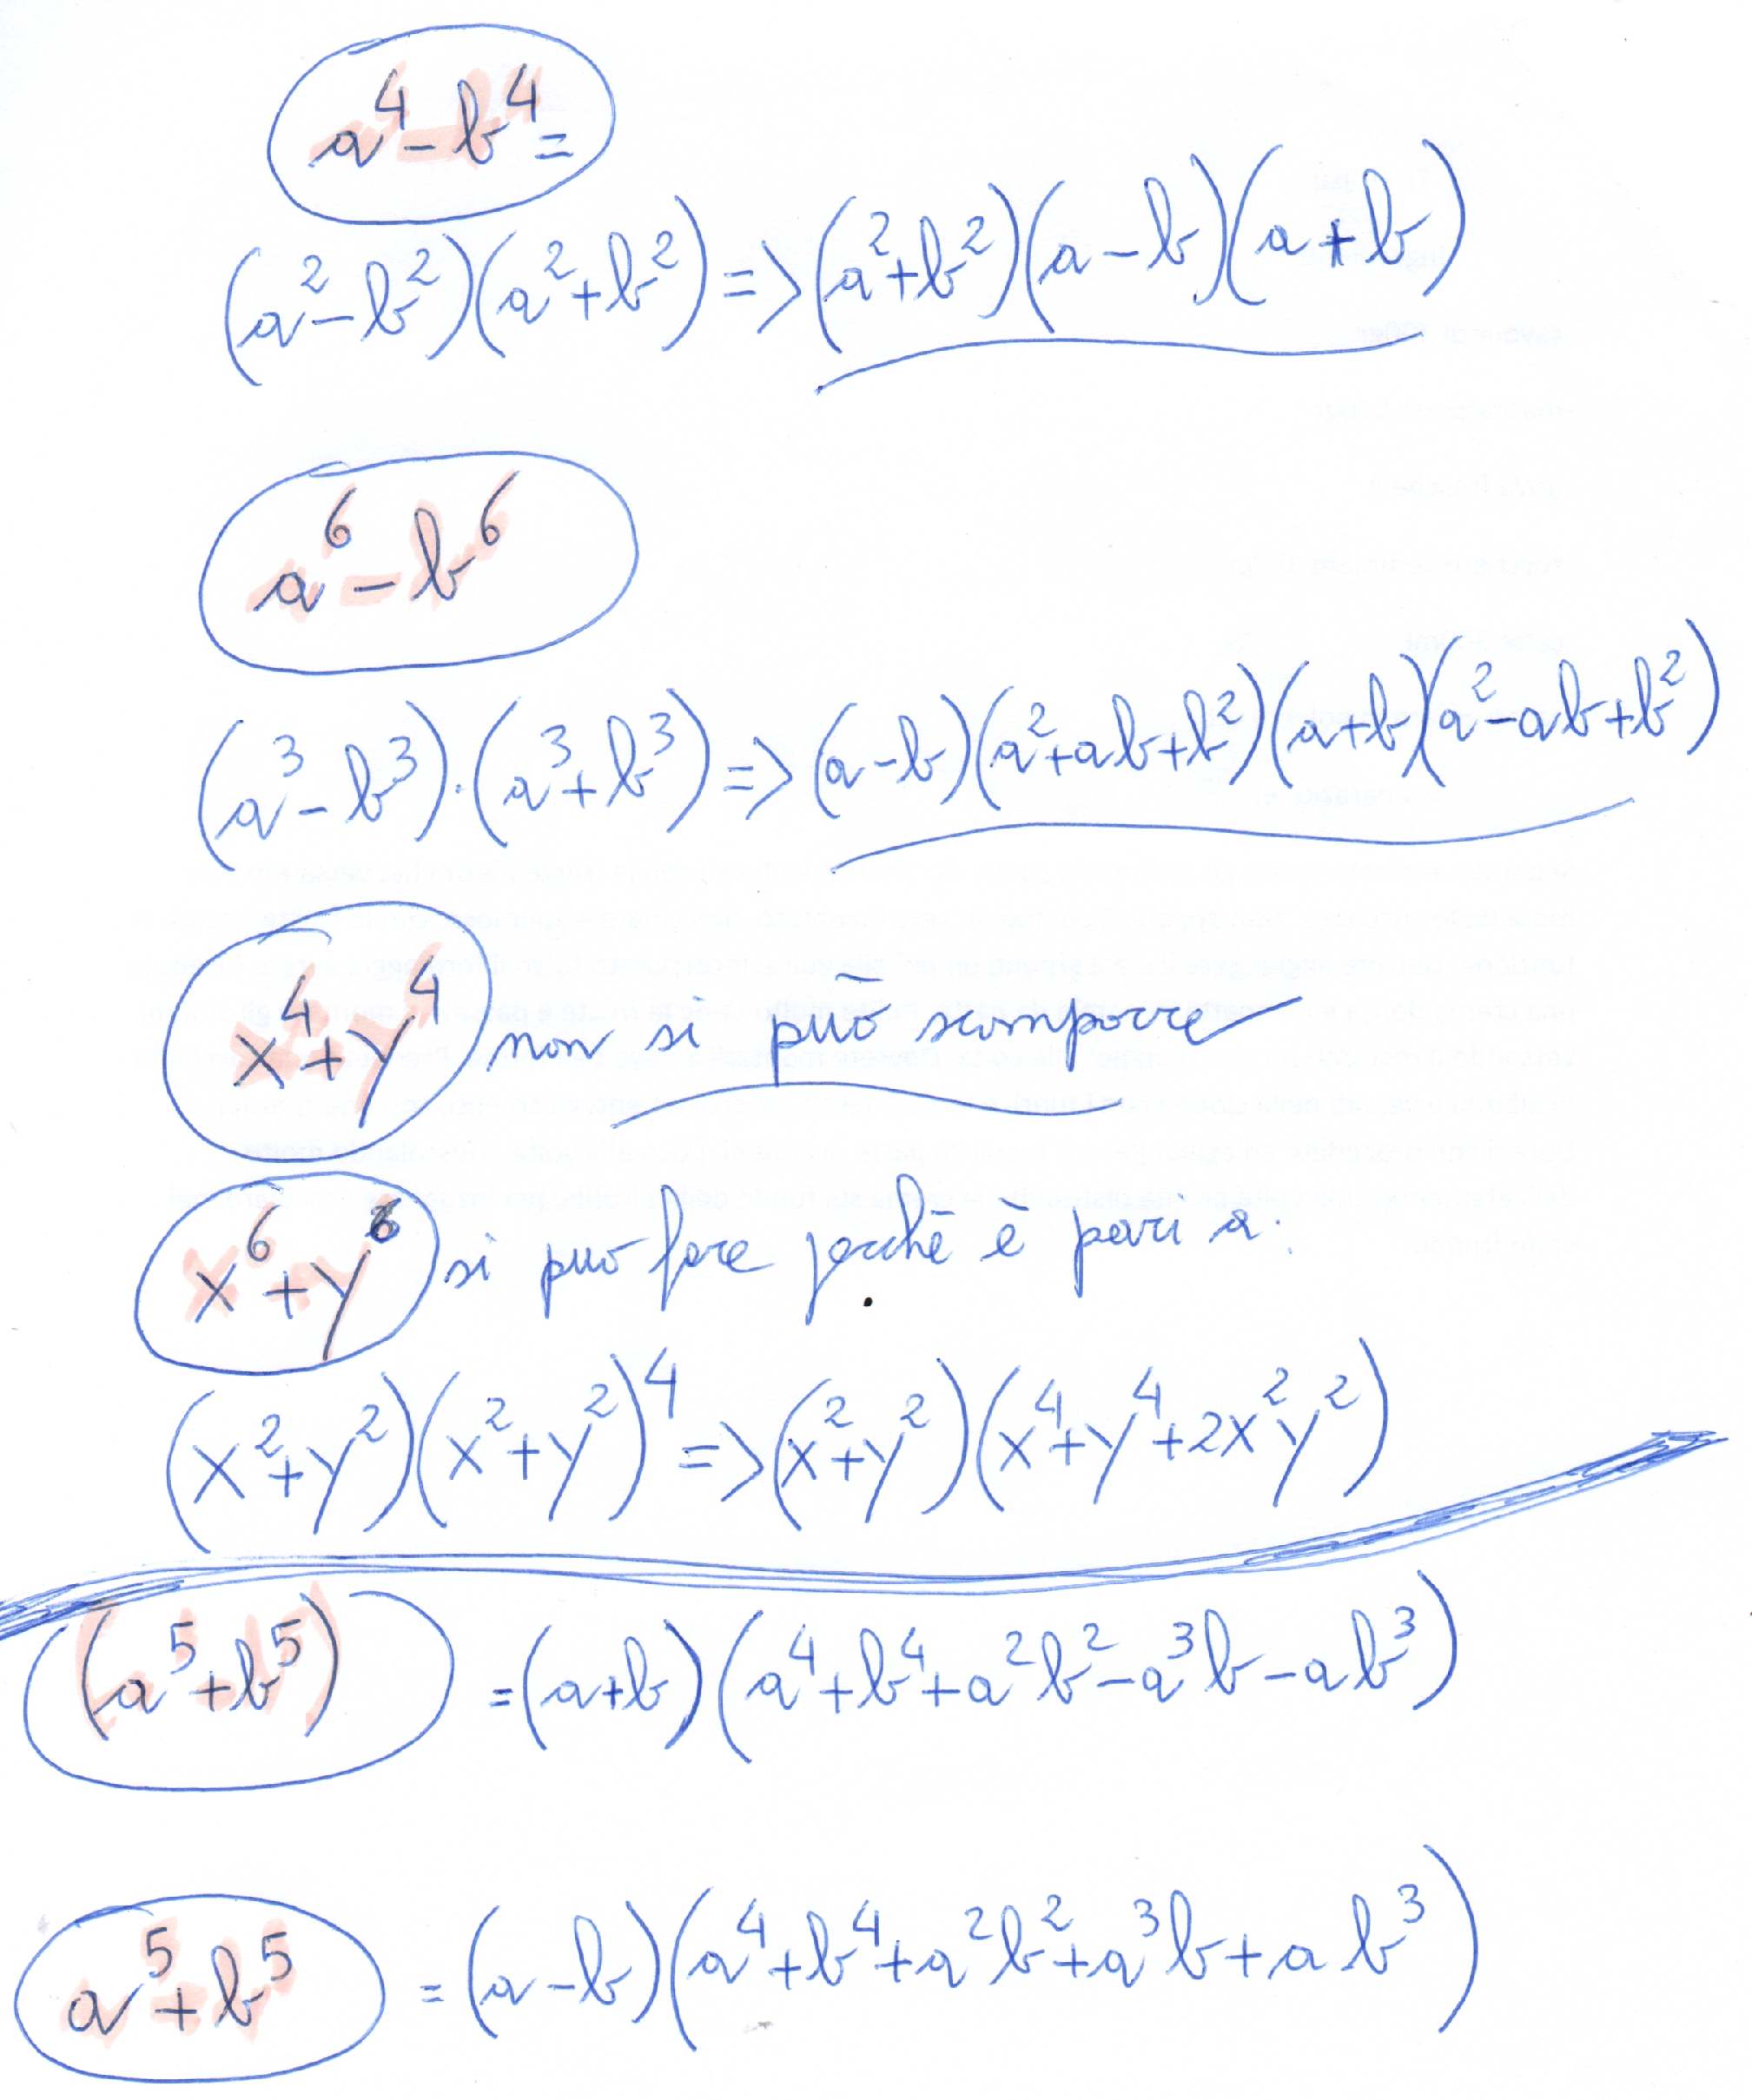 a⁴ - b⁴ =
(a² - b²)(a² + b²) => (a² + b²)(a - b)(a + b)
a⁶ - b⁶
(a³ - b³)·(a³ + b³) => (a - b)(a² + ab + b²)(a + b)(a² - ab + b²)
x⁴ + y⁴ non si può scomporre
x⁶ + y⁶ si può fare perchè è pari a:
(x² + y²)(x² + y²)⁴ => (x² + y²)(x⁴ + y⁴ + 2x²y²)
(a⁵ + b⁵) = (a + b)(a⁴ + b⁴ + a²b² - a³b - ab³)
a⁵ + b⁵ = (a - b)(a⁴ + b⁴ + a²b² + a³b + ab³)